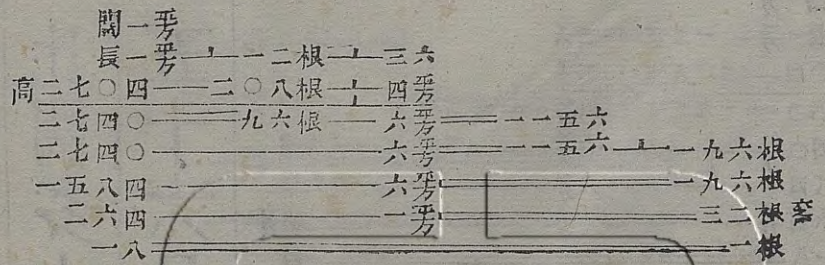 闊一平方
長一平方⊥一二根⊥三六
高二七〇四一二〇八根⊥四平方
二七四〇＝九六根一六平方＝一一五六
二七四〇一六平方＝一一五六⊥一九六根
一五八四一六平方＝一九六根
二六四一一平方＝三二根
一八＝一根